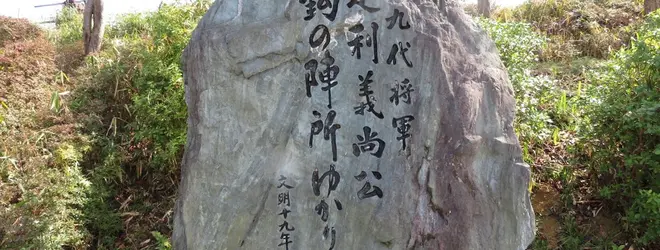 九代将軍
足利義尚公
鈎の陣所ゆかり
文明十九年